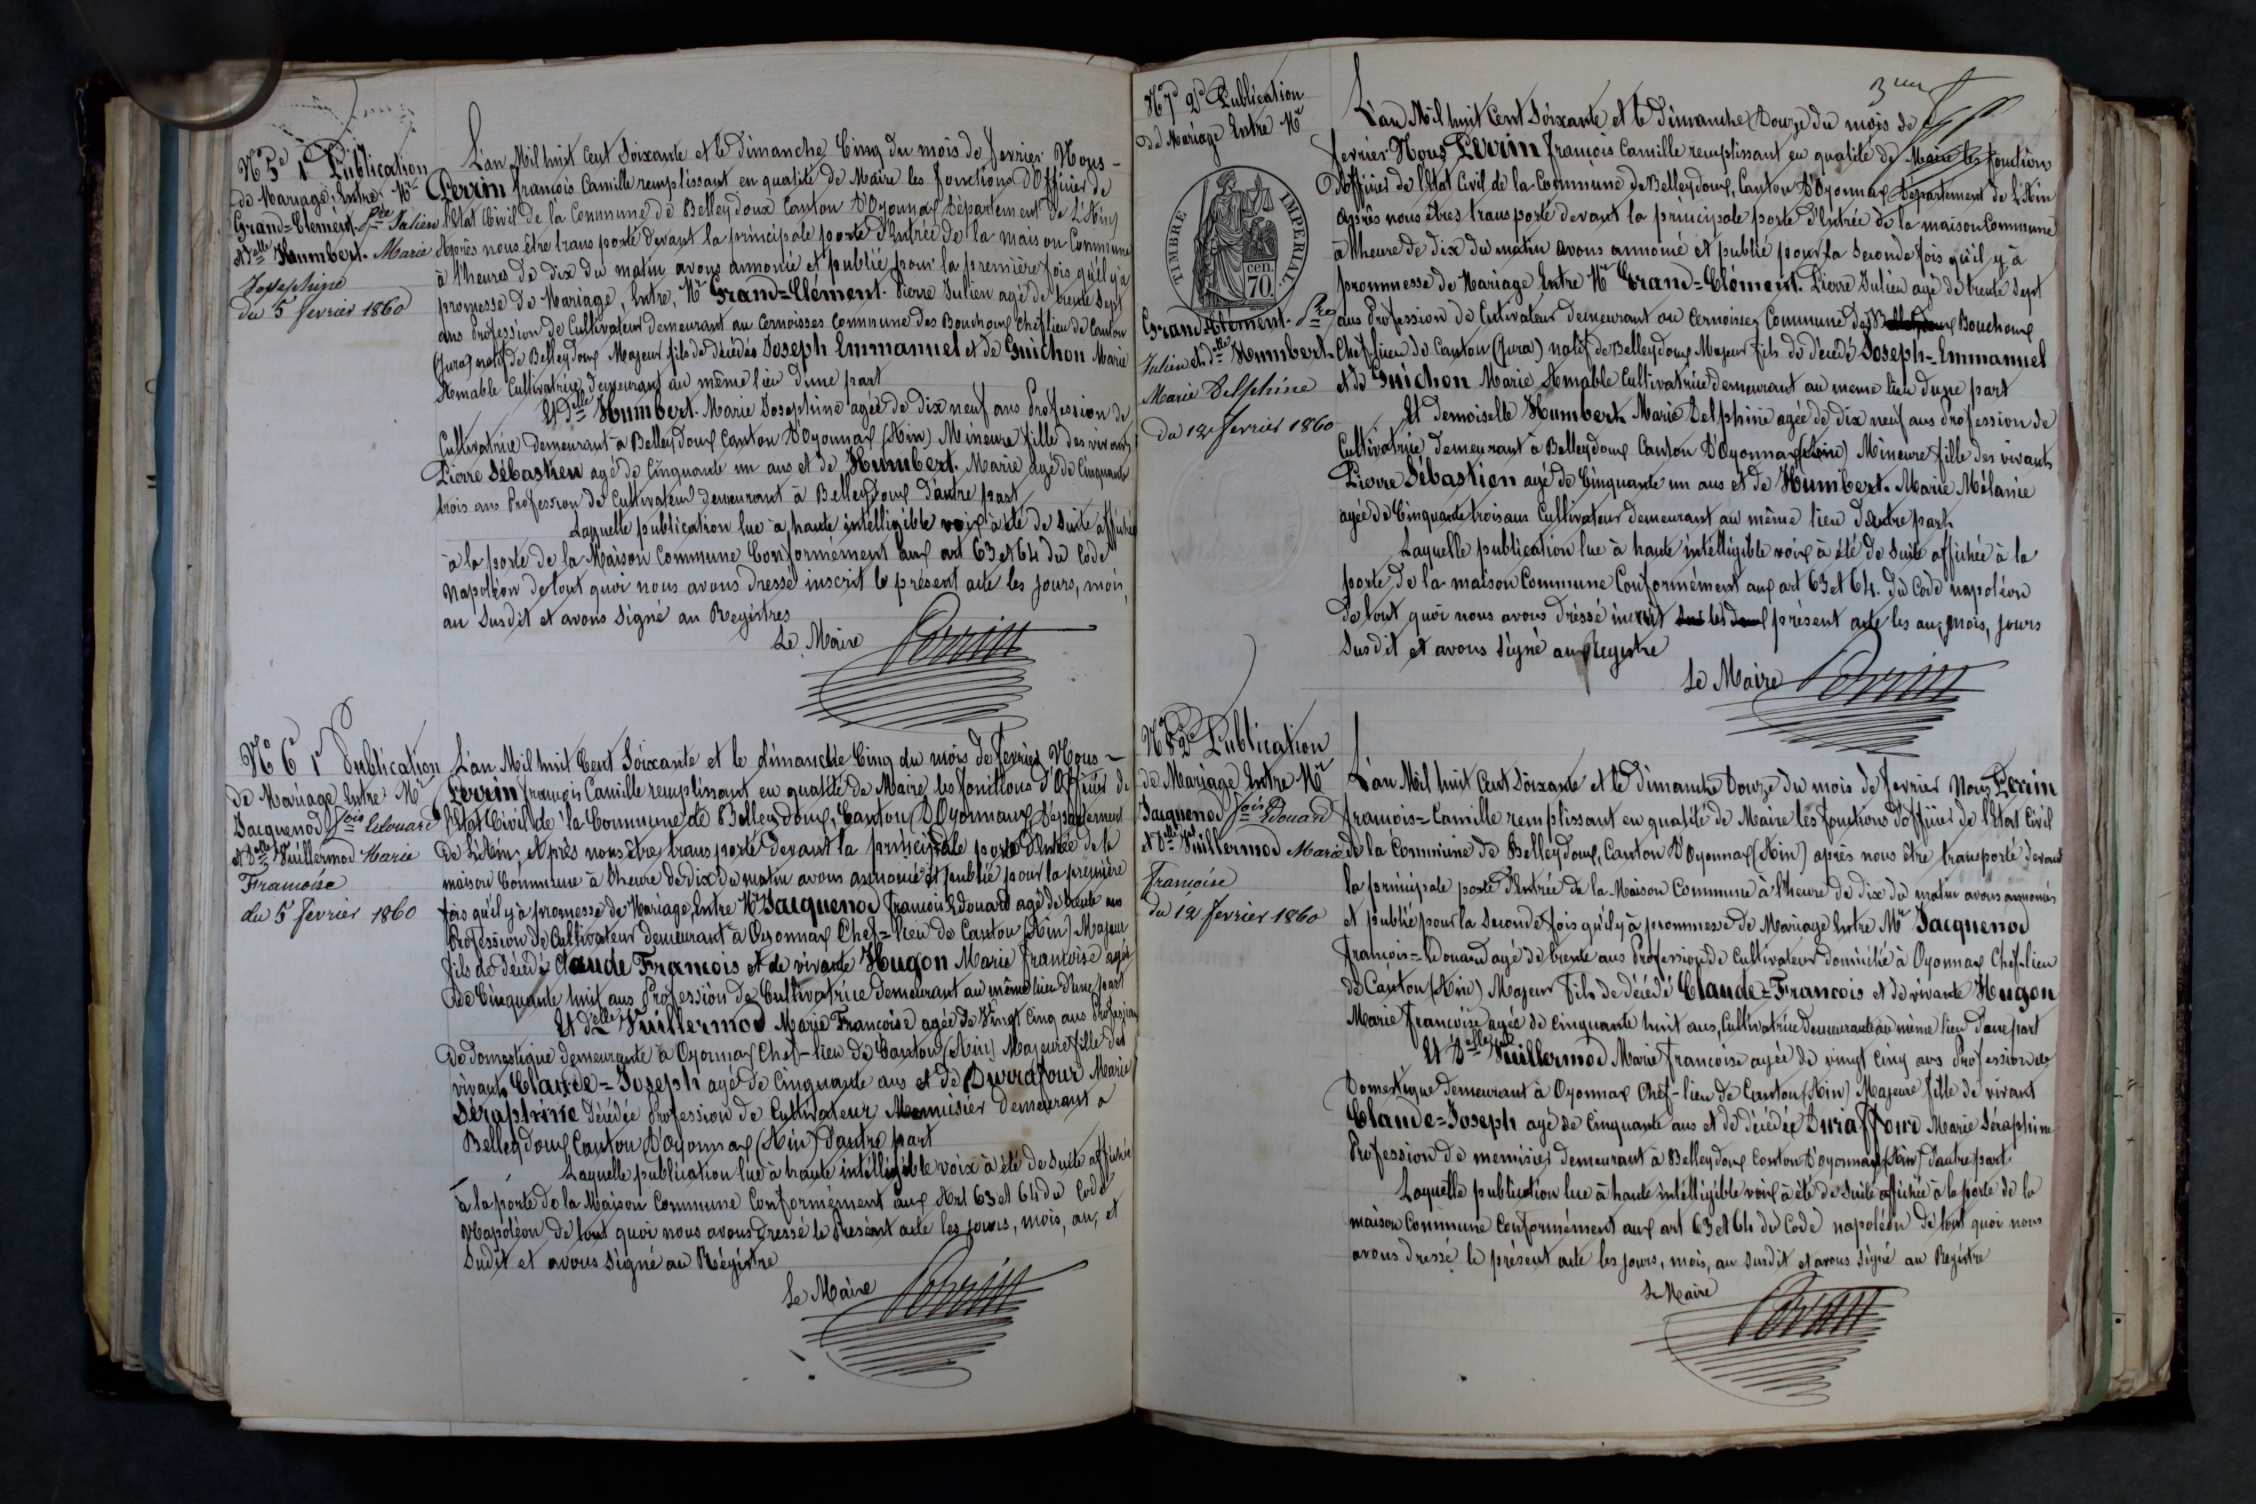 N° 5 1e Publication
de Mariage, Entre, Mr
Grand=Clément. Pre Julien
et Delle Humbert. Marie
Josephine
du 5 fevrier 1860
L'an Mil huit Cent Soixante et le dimanche Cinq du mois de fevrier Nous -
Perrin françois Camille remplissant en qualité de Maire les fonctions D'Officier de
l'Etat Civil de la Commune de Belleydoux Canton D'Oyonnax Département de L'Ain
Après nous être transporté devant la principale porte d'Entrée de la maison Commune
à l'heures de dix du matin avons annoncé et publié pour la première fois qu'il y a
promesse de Mariage, Entre, Mr Grand=Clément. Pierre Julien agé de trente Sept
ans Profession de Cultivateur demeurant au Cernoisses Commune des Bouchoux Chef lieu de Canton
(Jura) natif de Belleydoux Majeur fils de décédés Joseph Emmanuel et de Guichon Marie
Amable Cultivatrice demeurant au même lieu d'une part
Et Delle Humbert. Marie Josephine agée de dix neuf ans Profession de
Cultivatrice Demeurant à Belleydoux Canton D'Oyonnax (Ain) Mineure fille des vivants
Pierre Sébastien agé de Cinquante un ans et de Humbert. Marie Agé de Cinquante
trois ans Profession de Cultivateur demeurant à Belleydoux D'autre part
Laquelle publication lue à haute intélligible voix à été de Suite affichée
à la porte de la Maison Commune Conformément aux art 63 et 64 du Code
Napoléon de tout quoi nous avons dressé inscrit le présent acte les jours, mois,
an Susdit et avons Signé au Registres
Le Maire Perrin
N° 6 1e Publication
de Mariage Entre Mr
Jacquenod fois Edouard
et Delle Vuillermod Marie
Francoise
du 5 fevrier 1860
L'an Mil huit Cent Soixante et le dimanche Cinq du mois de fevrier Nous -
Perrin françois Camille remplissant en qualité de Maire les fonctions D'Officier de
l'Etat Civil de la Commune de Belleydoux, Canton D'Oyonnax Département
De L'Ain, Après nous être transporté devant la principale porte D'Entrée de la
maison Commune à l'heure de dix du matin avons annoncé et publié pour la première
fois qu'il y à promesse de Mariage Entre Mr Jacquenod françois Edouard agé de trente ans
Profession de Cultivateur demeurant à Oyonnax Chef=lieu de Canton (Ain) Majeur
fils de décédé Claude Francois et de vivante Hugon Marie francoise agée
de Cinquante huit ans Profession de Cultivatrice demeurant au même lieu D'une part
Et Delle Vuillermod Marie Francoise agée de Vingt Cinq ans Profession
de domestique demeurante à Oyonnax Chef-lieu de Canton (Ain) Majeure fille des
vivants Claude=Joseph agé de Cinquante ans et de Durrafour Marie
Séraphine Décédée Profession de Cultivateur Menuisier demeurant à
Belleydoux Canton D'Oyonnax (Ain) D'autre part
Laquelle publication lue à haute intélligible voix à été de Suite affichée
à la porte de la Maison Commune Conformément aux Art 63 et 64 du Code
Napoléon de tout quoi nous avons dressé le Présent acte les jours, mois, an, et
Sudit et avons Signé au Régistre
Le Maire Perrin
N° 7 2e Publication
de Mariage Entre Mr
TIMBRE IMPERIAL.
cen.
70.
Grand Clément. Pre
Julien et Delle Humbert.
Marie Delphine
Du 12 fevrier 1860
L'an Mil huit Cent Soixante et le dimanche Douze du mois de
fevrier Nous Perrin françois Camille remplissant en qualité de Maire les fonctions
D'officier de l'Etat Civil de la Commune de Belleydoux, Canton D'Oyonnax Département de l'Ain
après nous êtres transporté devant la principale porte d'Entrée de la maison Commune
à l'heure de dix du matin avons annoncé et publié pour la Seconde fois qu'il y à
prommesse de Mariage Entre Mr Grand=Clément. Pierre Julien agé de trente Sept
ans Profession de Cultivateur demeurant au Cernoisses Commune des Bouchoux
Chef lieu de Canton (Jura) natif de Belleydoux Majeur fils de décédé Joseph-Emmanuel
et de Guichon Marie Amable Cultivatrice demeurant au meme lieu d'une part
Et demoiselle Humbert. Marie Delphine agée de dix neuf ans Profession de
Cultivatrice demeurant à Belleydoux Canton D'Oyonnax (Ain) Mineure fille des vivants
Pierre Sébastien agé de Cinquante un ans et de Humbert. Marie Mélanie
agée de Cinquante trois ans Cultivateur demeurant au même lieu D'autre part
Laquelle publication lue à haute intélligible voix à été de Suite affichée à la
porte de la maison Commune Conformément aux art 63 et 64. du Code napoléon
de tout quoi nous avons dressé inscrit présent acte les an, mois, jours
Susdit et avons Signé au Registre
Le Maire Perrin
N° 8 2e Publication
de Mariage Entre Mr
Jacquenod fois Edouard
et Delle Vuillermod Marie
francoise
Du 12 fevrier 1860
L'an Mil huit Cent Soixante et le dimanche Douze du mois de fevrier Nous Perrin
françois=Camille remplissant en qualité de Maire les fonctions d'officier de l'Etat Civil
de la Commune de Belleydoux, Canton D'Oyonnax (Ain) après nous être transporté devant
la principale porte d'Entrée de la Maison Commune à l'heure de dix du matin avons annoncés
et publié pour la Seconde fois qu'il y à prommesse de Mariage Entre Mr Jacquenod
françois=Edouard agé de trente ans Profession de Cultivateur domicilié à Oyonnax Chef lieu
de Canton (Ain) Majeur fils de décédé Claude=Francois et de vivante Hugon
Marie francoise agée de Cinquante huit ans, Cultivatrice demeurante au même lieu D'une part
Et Delle Vuillermod Marie francoise agée de vingt Cinq ans Profession de
Domestique demeurant à Oyonnax Chef-lieu de Canton (Ain) Majeure fille de vivant
Claude=Joseph agé de Cinquante ans et de décédée Duraffourd Marie Séraphine
Profession de menuisier demeurant à Belleydoux Canton D'oyonnax (Ain) D'autre part
Laquelle publication lue à haute intélligible voix à été de Suite affichée à la porte de la
maison Commune Conformément aux art 63 et 64 du Code napoléon de tout quoi nous
avons dressé le présent acte les jours, mois, an Susdit et avons Signé au Registre
Le Maire Perrin